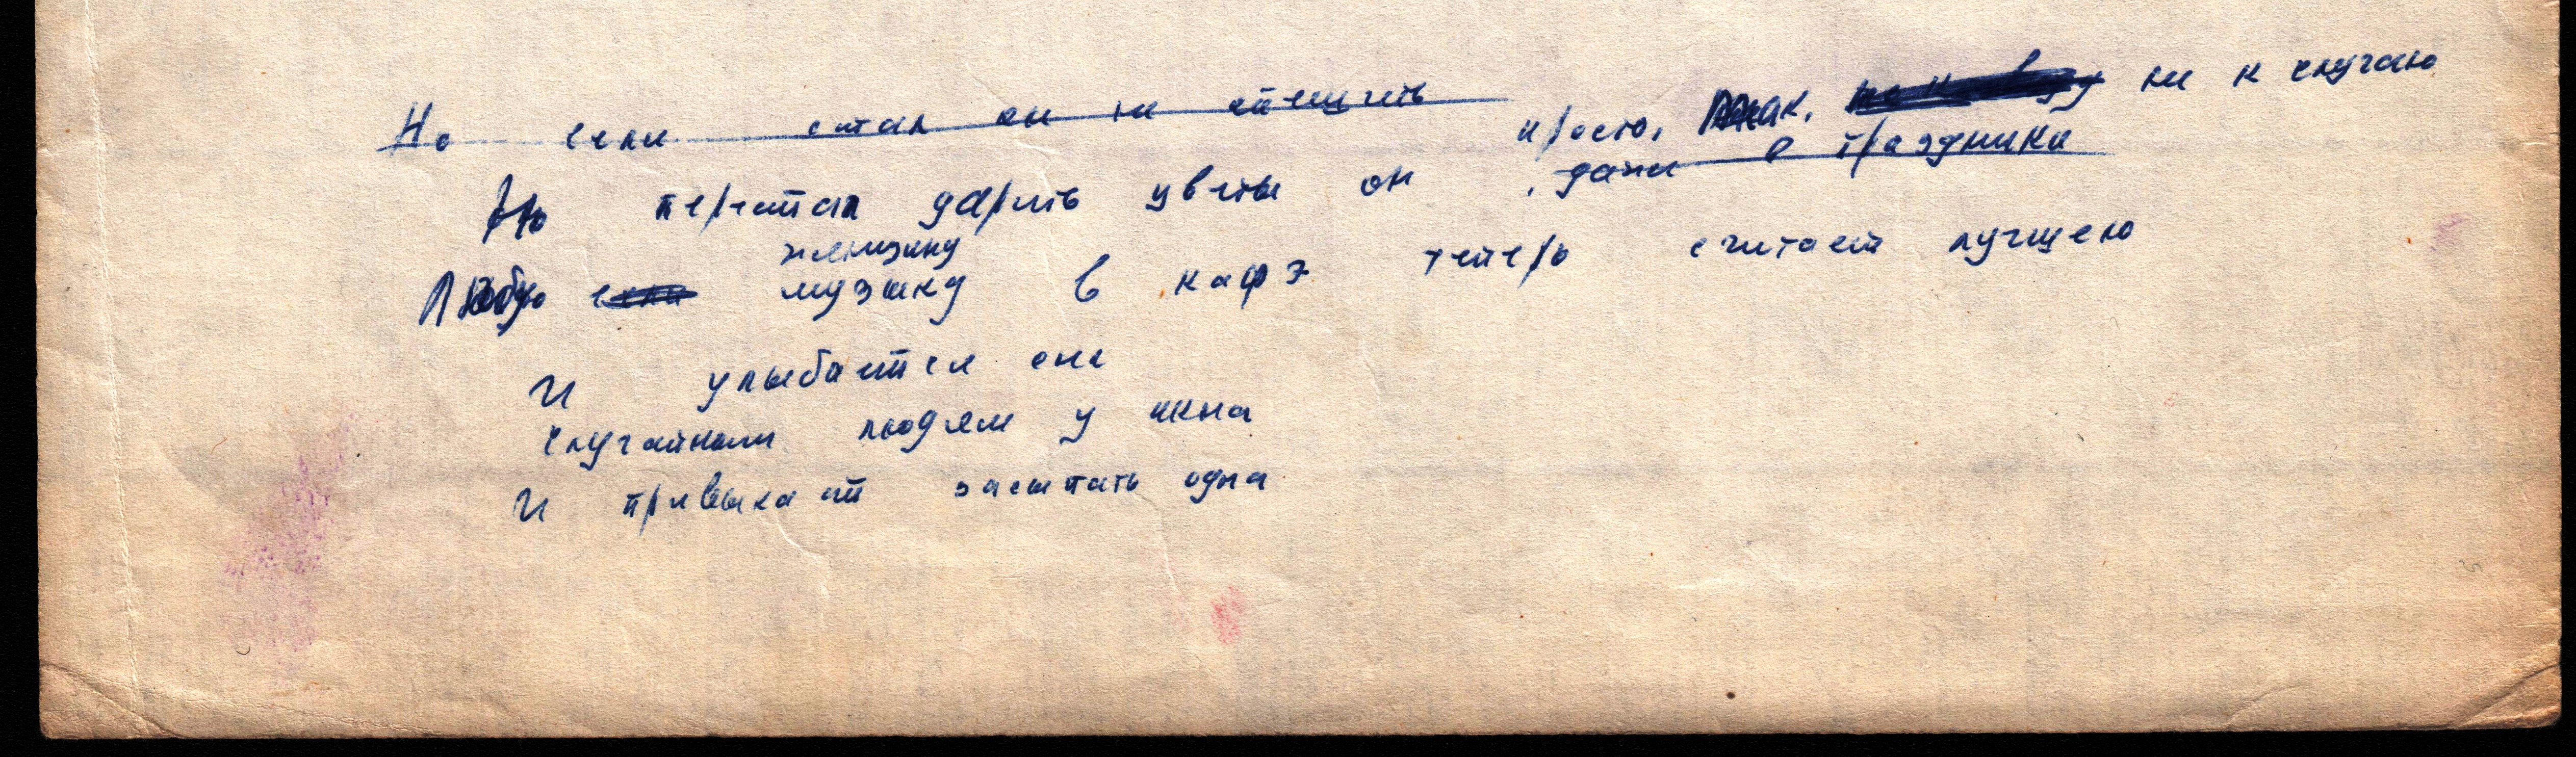 Но если стал он не
просто, так, ни к случаю
Но перестал дарить цветы он , даже в праздники
женщину
Любую музыку в кафэ теперь считает лучшею
И улыбается она
случайным людям у окна
И привыкает засыпать одна